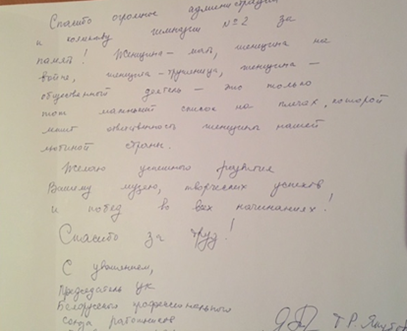 Спасибо огромное администрации
и коллективу гимназии №2 за
память! Женщина – мать, женщина на
войне, женщина – труженица, женщина –
общественный деятель – это только
тот маленький список на плечах, которой
лежит ответственность женщины нашей
любимой страны.
Желаю успешного развития
Вашему музею, творческих успехов
и побед во всех начинаниях!
Спасибо за труд!
С уважением,
Председатель ЦК
Белорусского профессионального
союза работников
Т.Р.